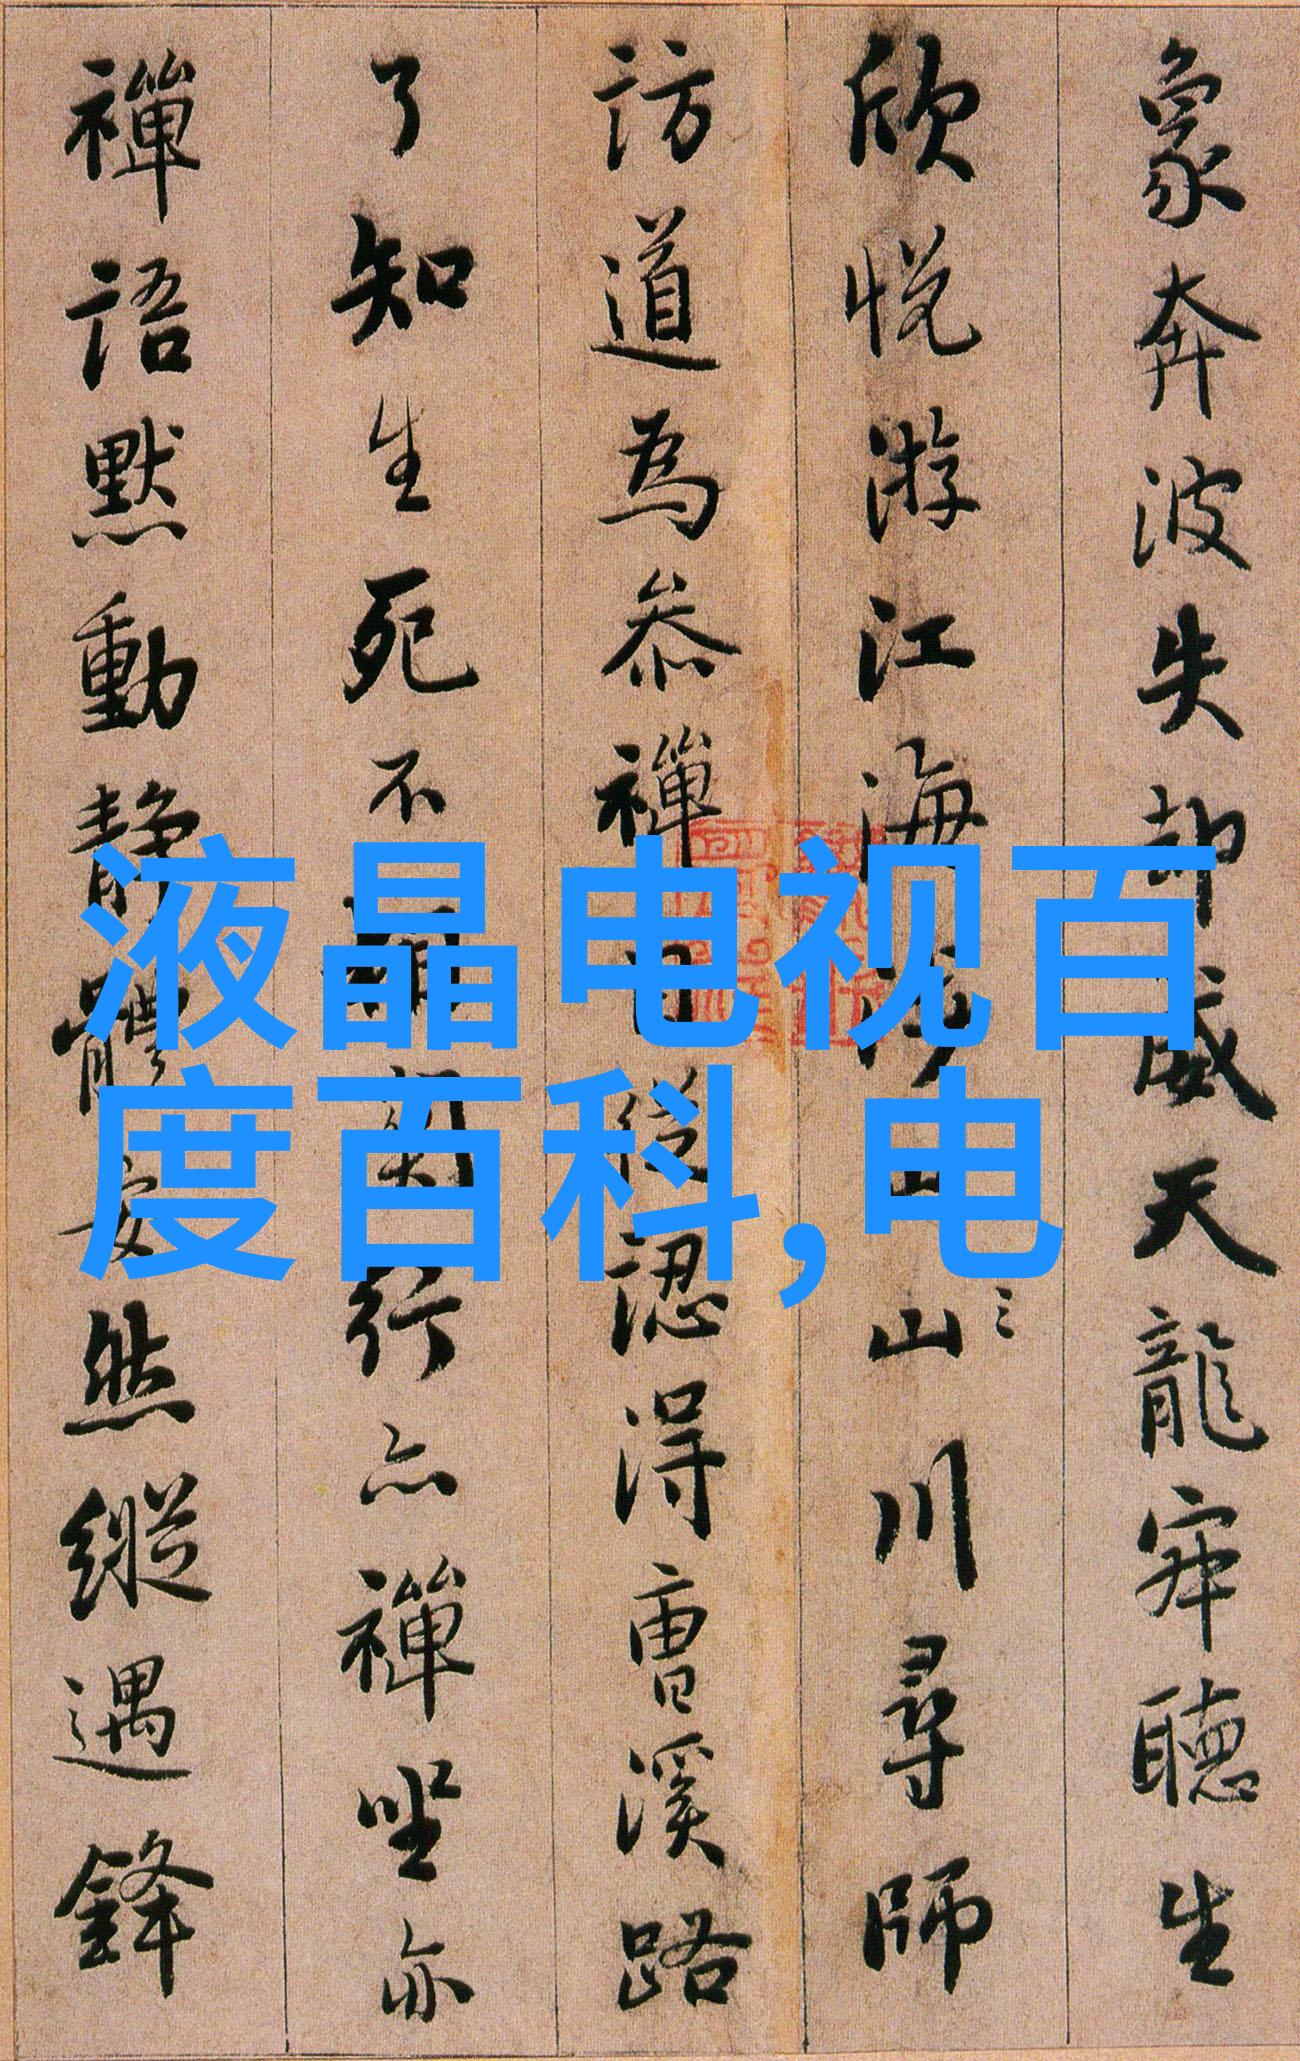 象奔波失却威天龍寂聽生
欣悅游江海涉山川尋師
訪道為參禪自從認得曹溪路
了知生死不相關行亦禪坐亦
禪語默動靜體安然縱遇鋒
液晶电视百
度百科,电